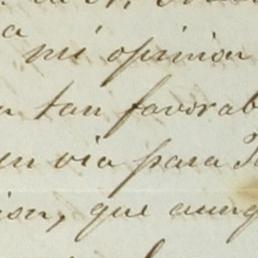 a mi opinion
tan favorab
en via para
que aunq